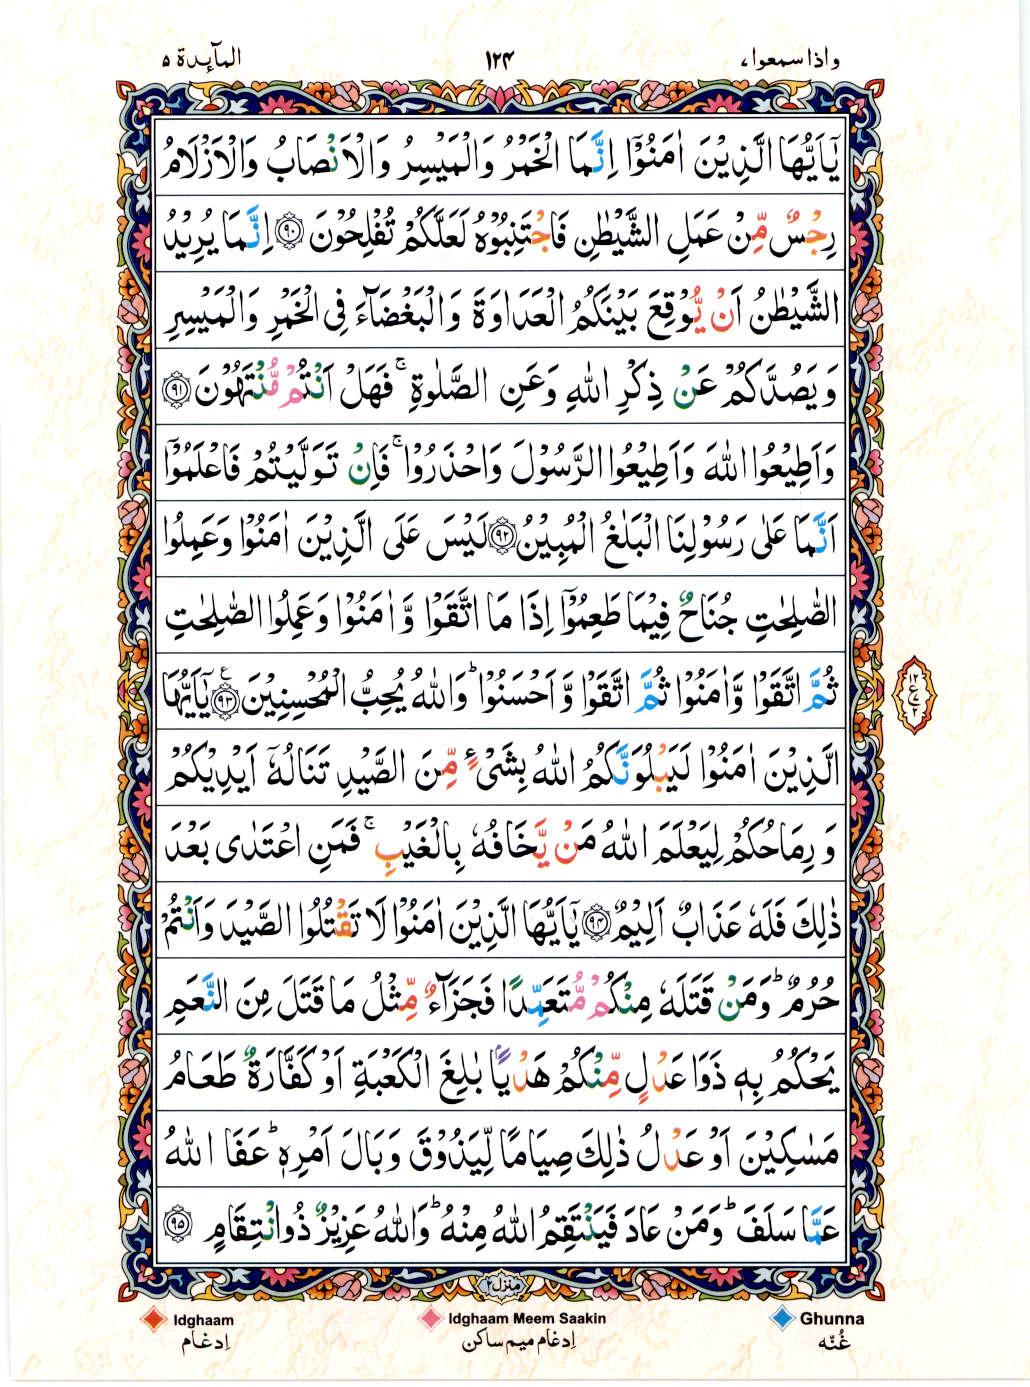 واذا سمعوا، ١٢٤ المآىِٕدة ٥
يٰۤاَيُّهَا الَّذِيْنَ اٰمَنُوْۤا اِنَّمَا الْخَمْرُ وَالْمَيْسِرُ وَالْاَنْصَابُ وَالْاَزْلَامُ
رِجْسٌ مِّنْ عَمَلِ الشَّيْطٰنِ فَاجْتَنِبُوْهُ لَعَلَّكُمْ تُفْلِحُوْنَ ﴿٩٠﴾ اِنَّمَا يُرِيْدُ
الشَّيْطٰنُ اَنْ يُّوْقِعَ بَيْنَكُمُ الْعَدَاوَةَ وَالْبَغْضَآءَ فِى الْخَمْرِ وَالْمَيْسِرِ
وَيَصُدَّكُمْ عَنْ ذِكْرِ اللّٰهِ وَعَنِ الصَّلٰوةِ ۚ فَهَلْ اَنْتُمْ مُّنْتَهُوْنَ ﴿٩١﴾
وَاَطِيْعُوا اللّٰهَ وَاَطِيْعُوا الرَّسُوْلَ وَاحْذَرُوْا ۚ فَاِنْ تَوَلَّيْتُمْ فَاعْلَمُوْۤا
اَنَّمَا عَلٰى رَسُوْلِنَا الْبَلٰغُ الْمُبِيْنُ ﴿٩٢﴾ لَيْسَ عَلَى الَّذِيْنَ اٰمَنُوْا وَعَمِلُوا
الصّٰلِحٰتِ جُنَاحٌ فِيْمَا طَعِمُوْۤا اِذَا مَا اتَّقَوْا وَّاٰمَنُوْا وَعَمِلُوا الصّٰلِحٰتِ
ثُمَّ اتَّقَوْا وَّاٰمَنُوْا ثُمَّ اتَّقَوْا وَّاَحْسَنُوْا ؕ وَاللّٰهُ يُحِبُّ الْمُحْسِنِيْنَ ﴿٩٣﴾ ع يٰۤاَيُّهَا
الَّذِيْنَ اٰمَنُوْا لَيَبْلُوَنَّكُمُ اللّٰهُ بِشَىْءٍ مِّنَ الصَّيْدِ تَنَالُهٗۤ اَيْدِيْكُمْ
وَرِمَاحُكُمْ لِيَعْلَمَ اللّٰهُ مَنْ يَّخَافُهٗ بِالْغَيْبِ ۚ فَمَنِ اعْتَدٰى بَعْدَ
ذٰلِكَ فَلَهٗ عَذَابٌ اَلِيْمٌ ﴿٩٤﴾ يٰۤاَيُّهَا الَّذِيْنَ اٰمَنُوْا لَا تَقْتُلُوا الصَّيْدَ وَاَنْتُمْ
حُرُمٌ ؕ وَمَنْ قَتَلَهٗ مِنْكُمْ مُّتَعَمِّدًا فَجَزَآءٌ مِّثْلُ مَا قَتَلَ مِنَ النَّعَمِ
يَحْكُمُ بِهٖ ذَوَا عَدْلٍ مِّنْكُمْ هَدْيًاۢ بٰلِغَ الْكَعْبَةِ اَوْ كَفَّارَةٌ طَعَامُ
مَسٰكِيْنَ اَوْ عَدْلُ ذٰلِكَ صِيَامًا لِّيَذُوْقَ وَبَالَ اَمْرِهٖ ؕ عَفَا اللّٰهُ
عَمَّا سَلَفَ ؕ وَمَنْ عَادَ فَيَنْتَقِمُ اللّٰهُ مِنْهُ ؕ وَاللّٰهُ عَزِيْزٌ ذُوانْتِقَامٍ ﴿٩٥﴾
منزل ٢
Idghaam Idghaam Meem Saakin Ghunna
اِدغام اِدغام میم ساکن غُنّه